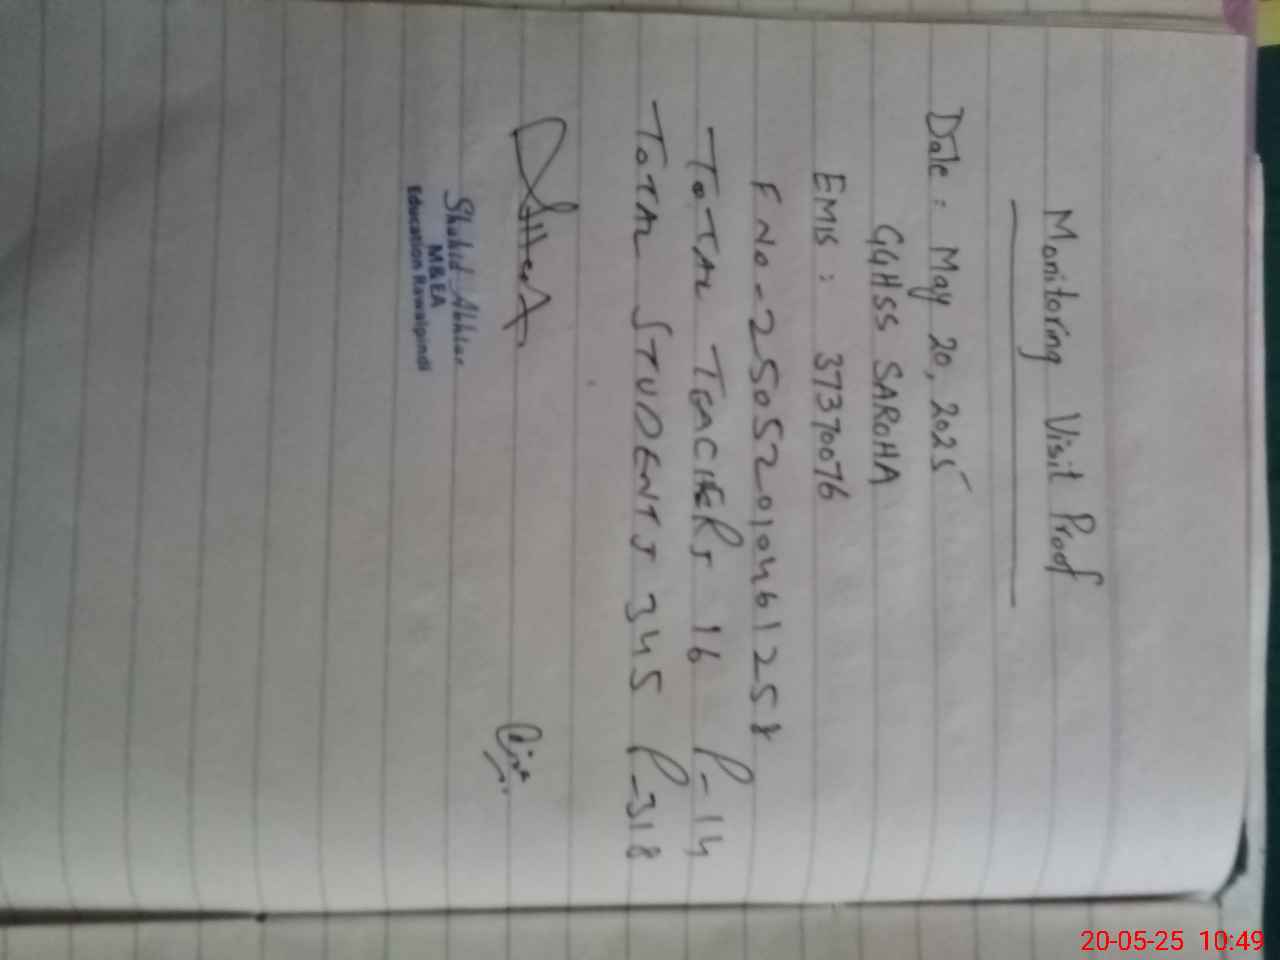 Monitoring Visit Proof
Date: May 20, 2025
GGHSS SAROHA
EMIS: 37370076
F No-25052010461258
TOTAL TEACHERS 16 P-14
TOTAL STUDENTS 345 P-318
Shahid Akhtar
M&EA
Education Rawalpindi
20-05-25 10:49